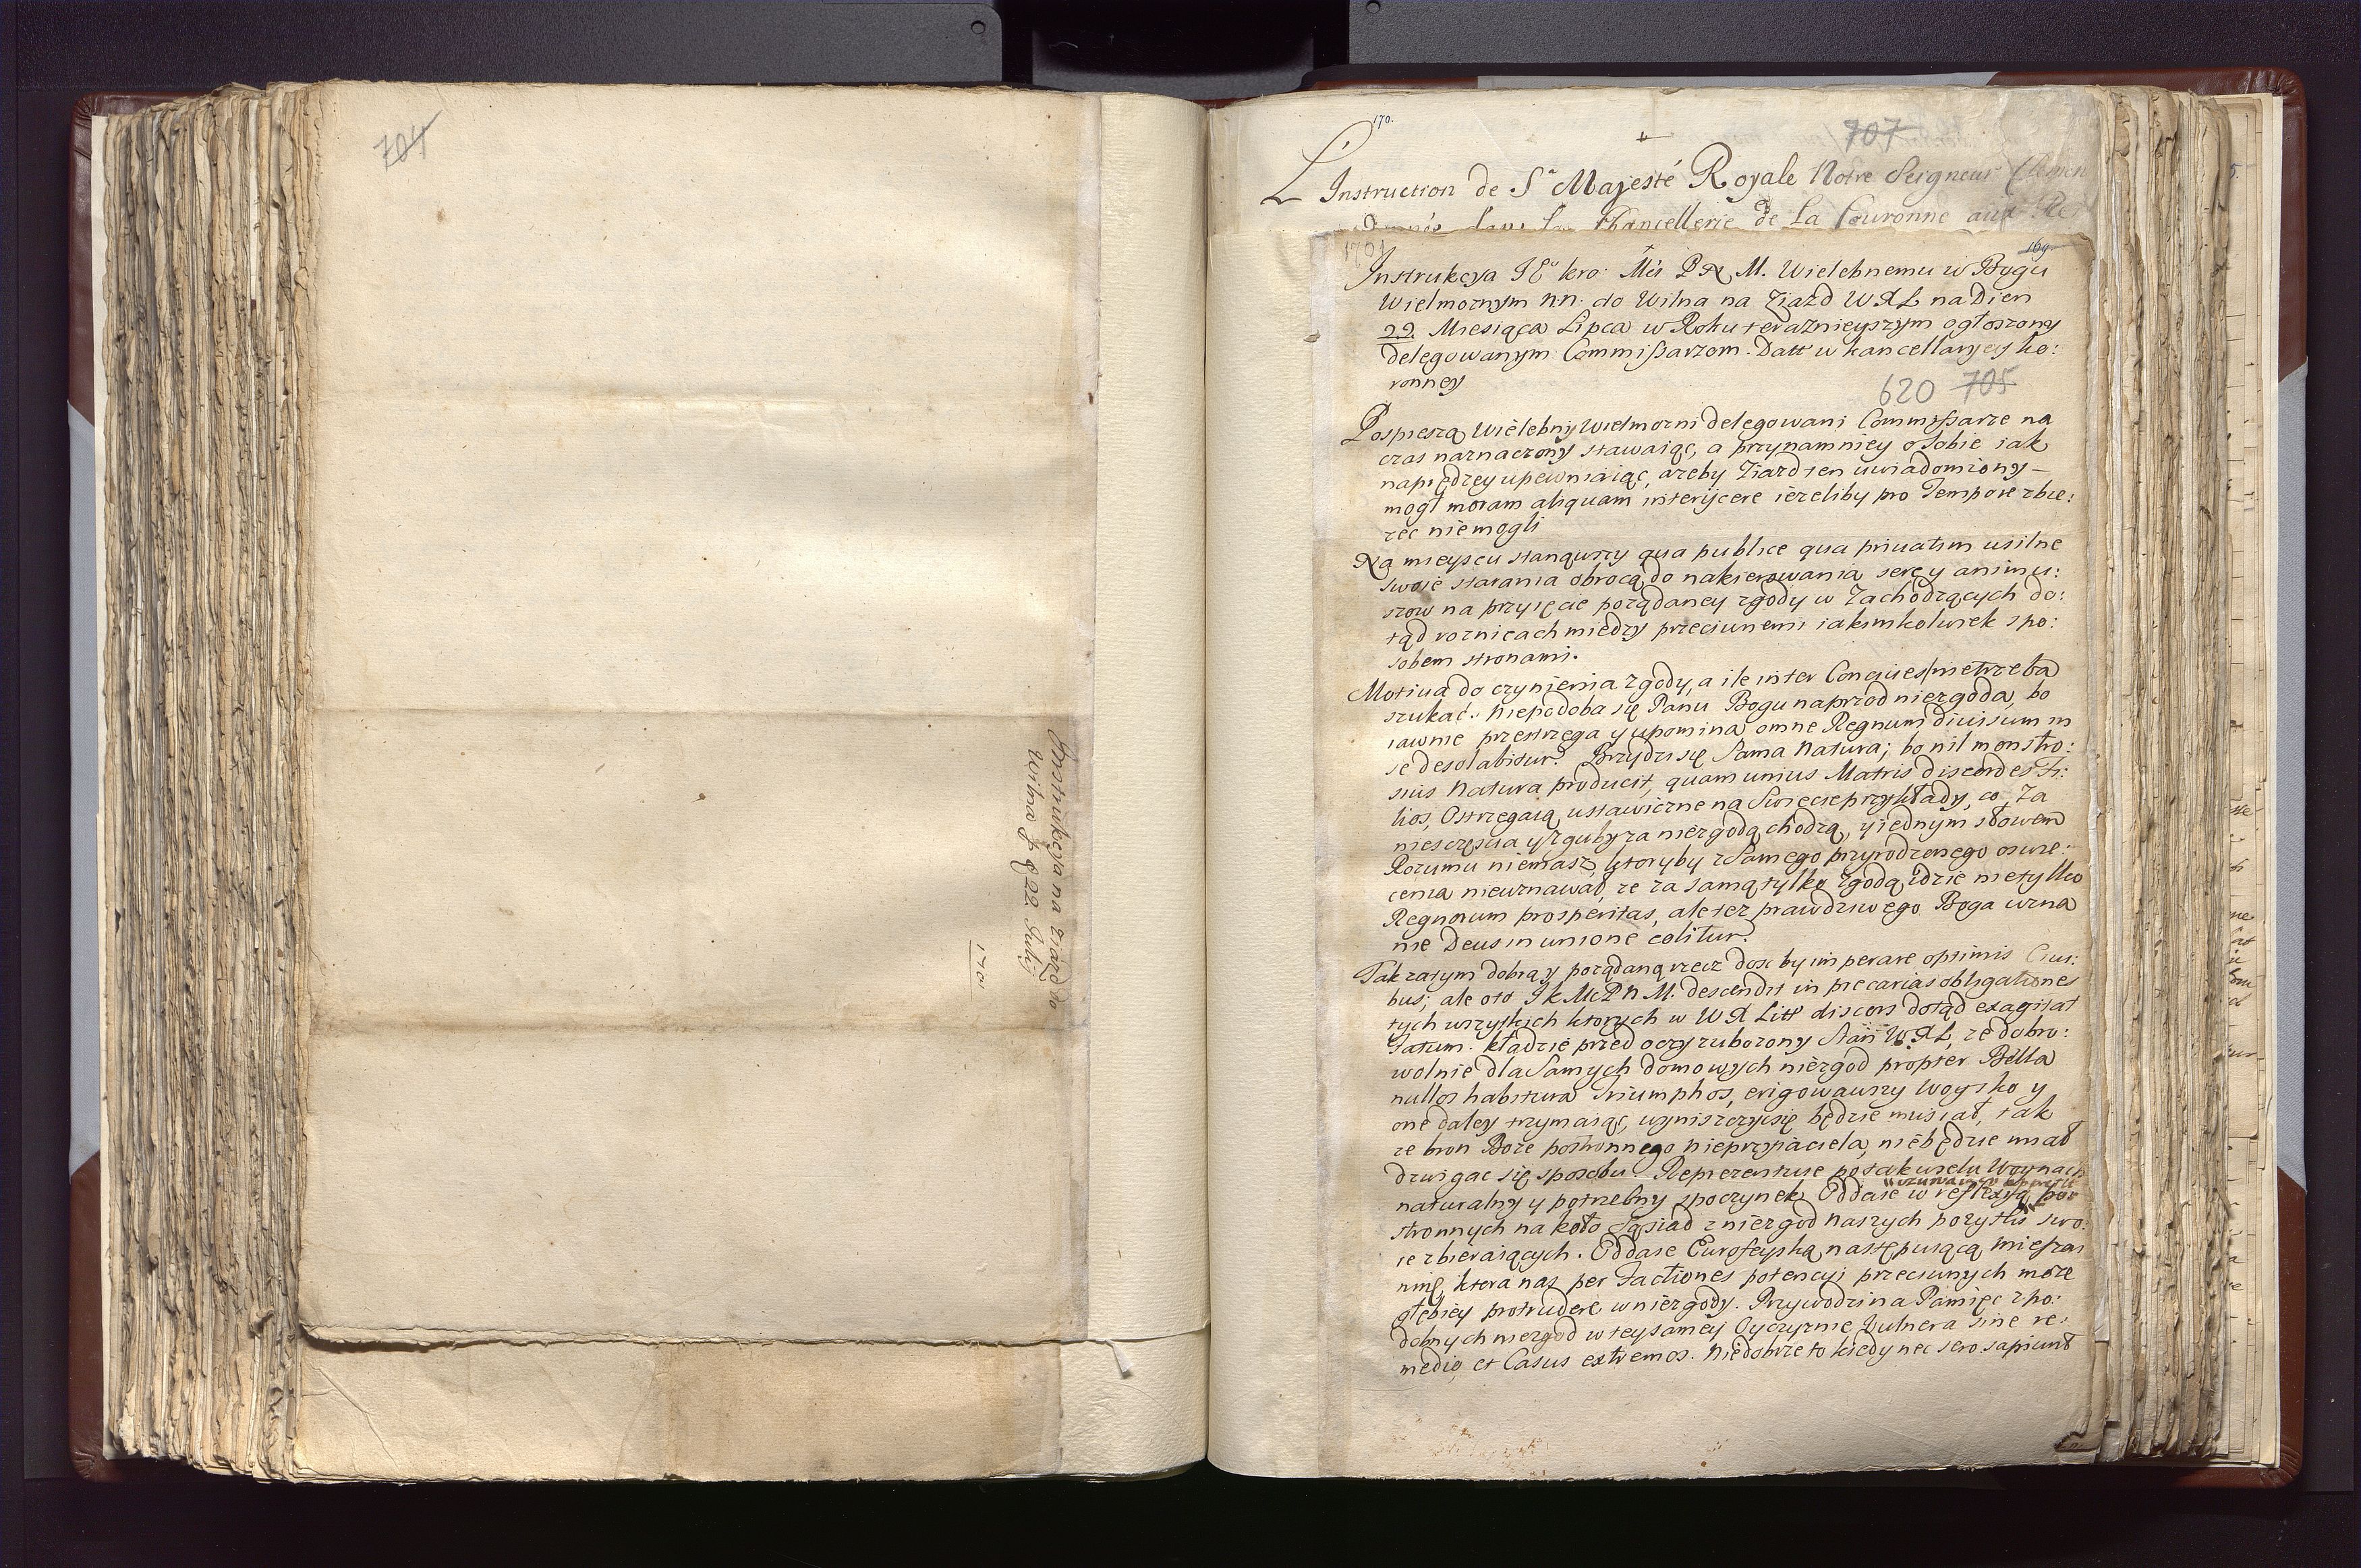 704
Instrukcya na Ziazd do
Wilna p. d. 22 Julij
1701
170.
707
L'Instruction de Sa Majesté Royale Notre Seigneur
dans la Chancellerie de La Couronne aux
1701
169
Instrukcya JEo kro: Mći P N M. Wielebnemu w Bogu
Wielmoznym nn: do Wilna na Ziazd WXL na Dzien
22. Miesiąca Lipca w Roku terazńieyszym ogłoszony
delegowanym Commißarzom. Datt w kancellaryey ko:
ronney
620 705
Pospieszą Wielebny Wielmozni delegowani Commißarze na
czas naznaczony stawaiąc, a przynamniey o Sobie iak
napiędzey upewniaiąc, azeby Ziazd ten uwiadomiony
mogł moram aliquam interijcere iezeliby pro Tempore zbie:
zec niemogli
Na mieyscu stanąwszy qua publice qua priuatim usilne
swoie starania obrocą do nakierowania serc y animu:
szow na przyięcie porządaney zgody w Zachodzących do:
tąd roznicach miedzy przeciwnemi iakimkolwiek spo:
sobem stronami.
Motiua do czynienia zgody, a ile inter Conciues nietrzeba
szukać. Niepodoba się Panu Bogu naprzod niezgoda, bo
iawnie przestrzega y upomina omne Regnum diuisum in
se desolabitur. Brzydzi się Sama Natura; bo nil monstro:
sius Natura producit, quam unius Matris discordes Fi:
lios, Ostrzegaią ustawiczne na Swięcie przykłady, co Za
niesczęscia y zguby za niezgodą chodzą, y iednym słowem
Rozumu niemasz, ktoryby z Samego przyrodzonego oswie:
cenia nieuznawał, ze za samą tylko zgodą idzie nietylko
Regnorum prosperitas, ale tez prawdziwego Boga uzna
nie Deus in unione colitur.
Tak zatym dobrą y porządaną rzecz dosc by imperare optimis Ciui:
bus; ale oto J k Mć P N M. descendit in precarias obligationes
tych wszystkich ktorych w WX Litt discors dotąd exagitat
Fatum. kładzie przed oczy zubozony Stan WXL, ze dobro:
wolnie dla Samych domowych niezgod propter Bella
nullos habitura Triumphos, erigowawszy Woysko y
one daley trzymaiąc, wyniszczyc się będzie musiał, tak
ze bron Boze postronnego nieprzyiaciela, niebędzie miał
dzwigac się sposobu. Reprezentuie po tak wielu Woynach
naturalny y potrzebny spoczynek, Oddaie w reflexyą po
stronnych na koło Sąsiad z niezgod naszych pozytki swo:
ie zbieraiących. Oddaie Europeyską następuiącą mieszan
ninę, ktora nas per Factiones potencyi przeciwnych moze
głębiey protrudere w niezgody. Przywodzi na Pamięc z po:
dobnych niezgod w teysamey Oyczyznie Vulnera sine re:
medio, et Casus extremos. Niedobrze to kiedy nec sero sapiunt